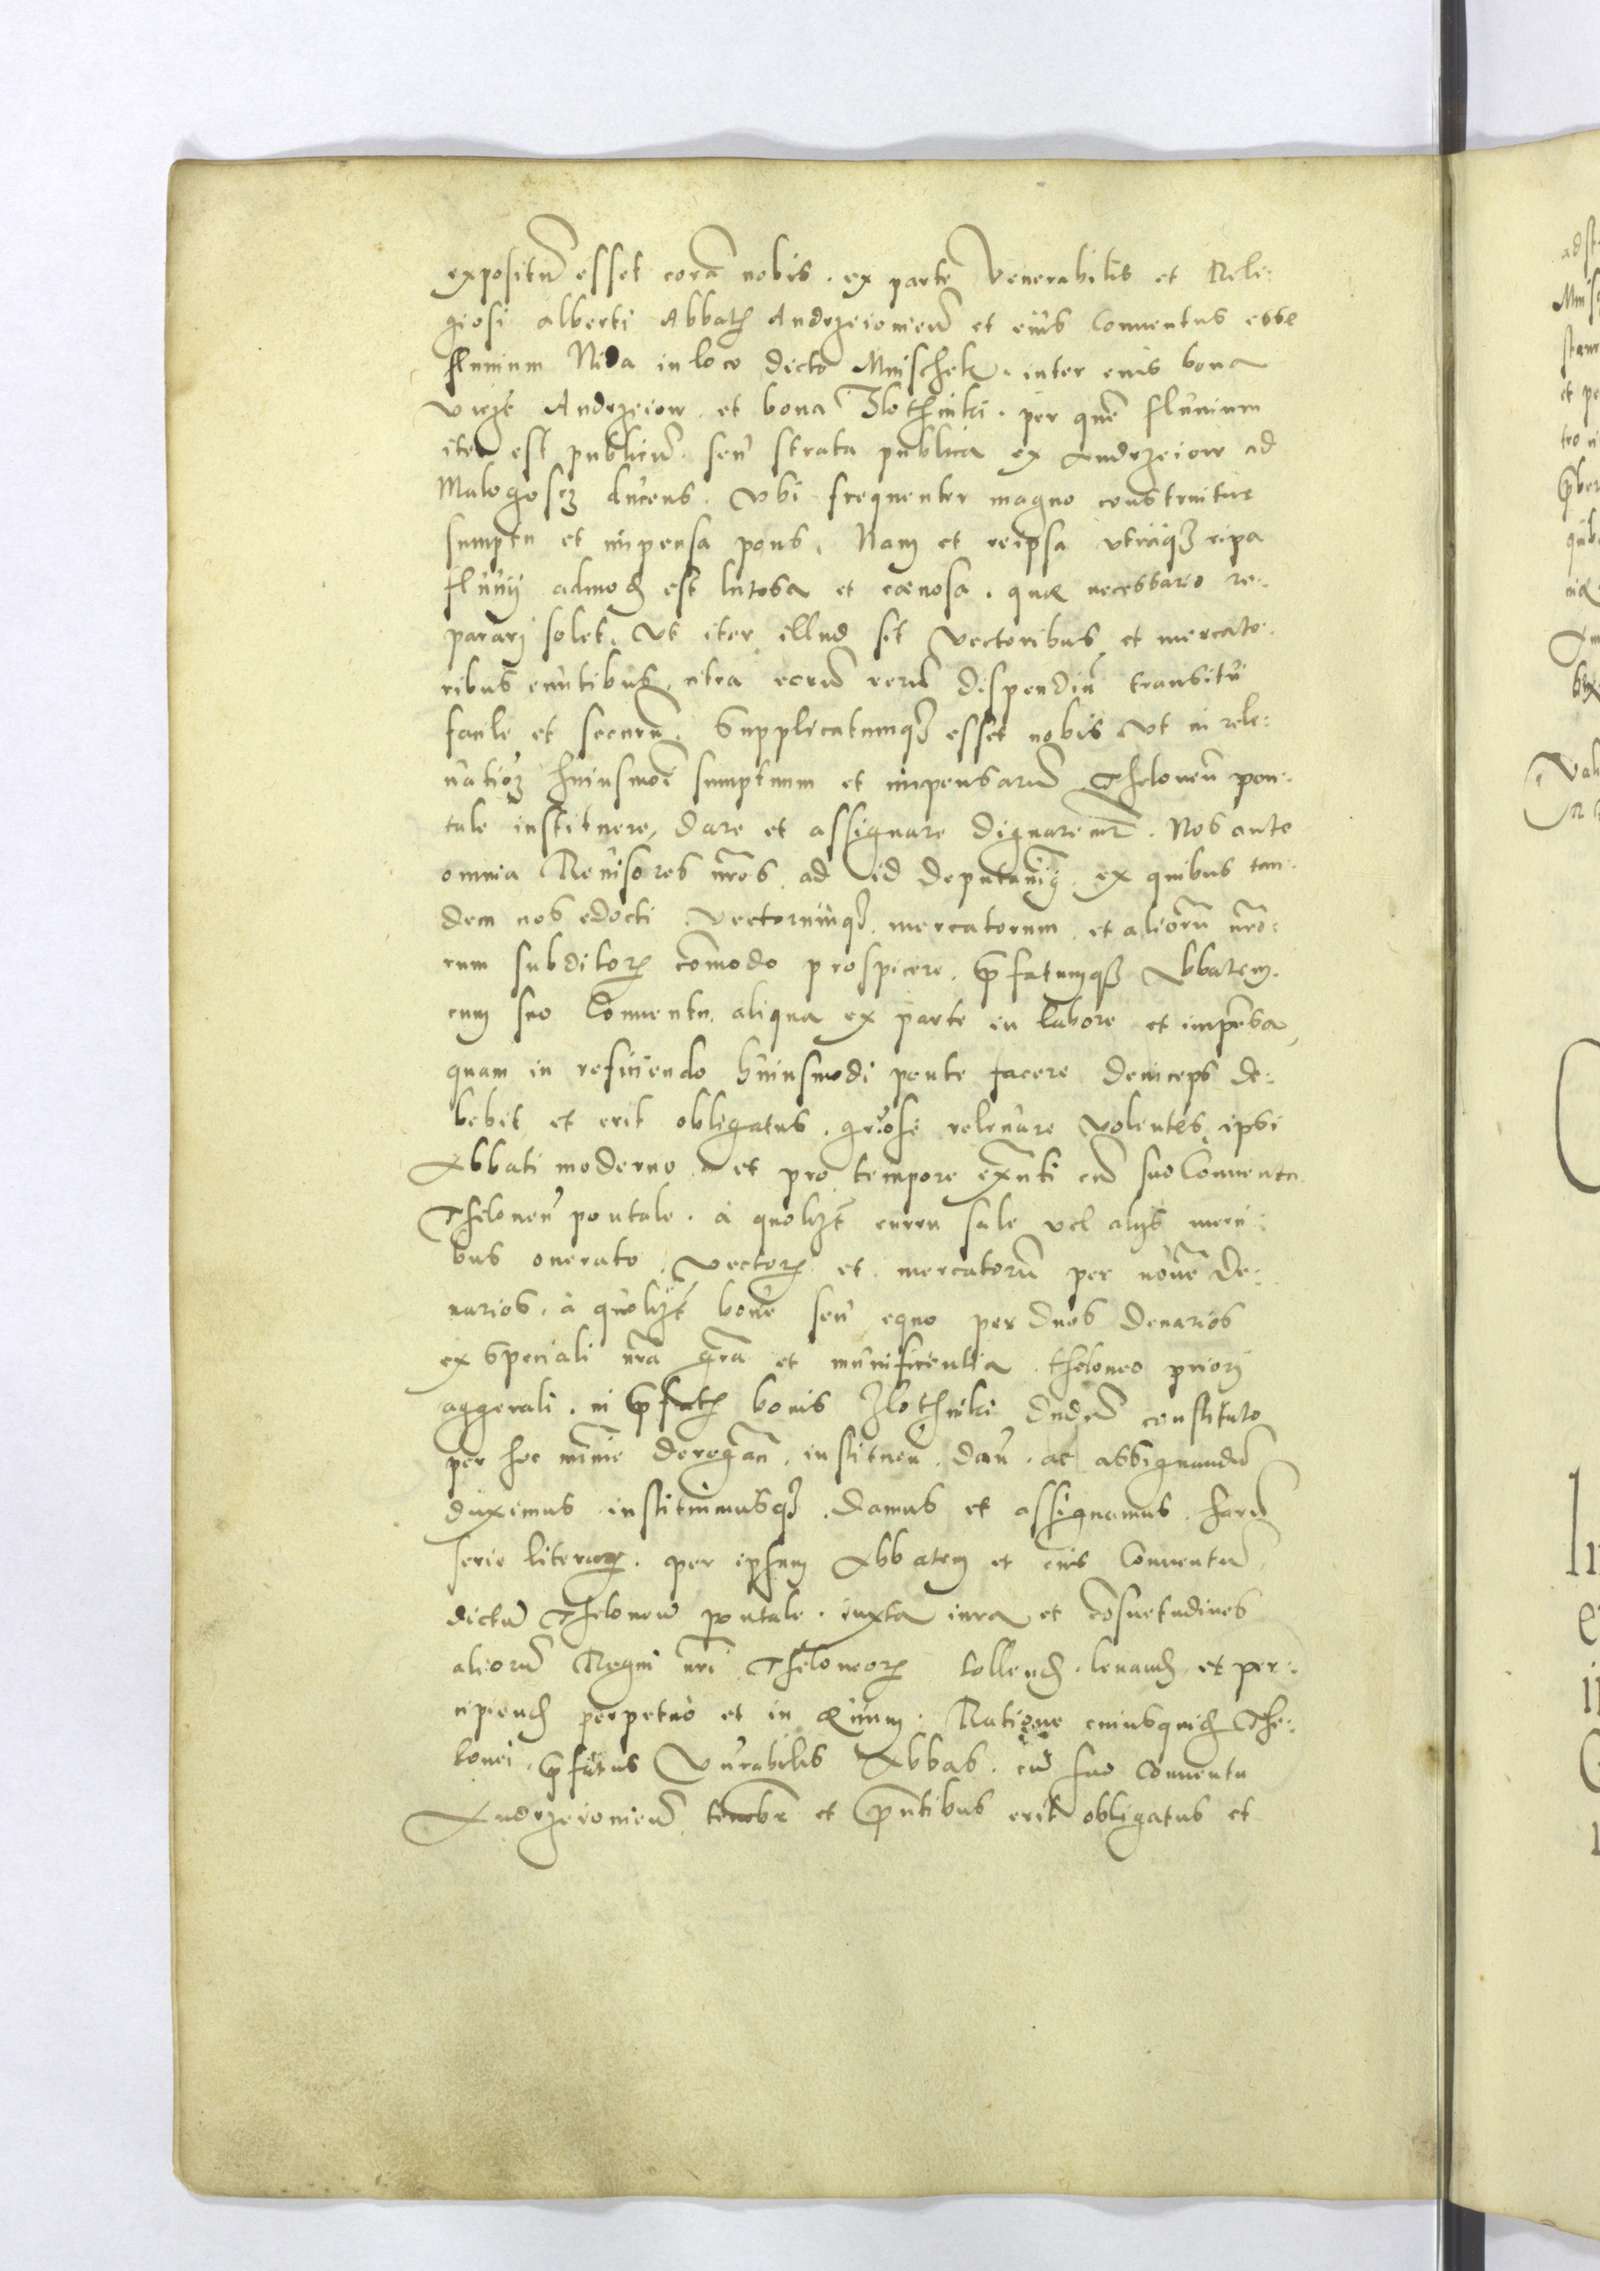 expositū esset corā nobis. ex parte Venerabilis et Rele:
giosi alberti Abbatꝭ Andrzeiouieñ et eius Conuentus esse
fluuium Nida in loco dicto Mnischek. inter eius bona
vizꝫ Andrzeiow. et bona Zlothniki. per quē fluuium
iter est publicū. seu strata publica ex Andrzeiow ad
Malogoscz ducens. vbi frequenter magno construitur
sumptu et impensa pons. Nam et reipsa vtraqꝫ ripa
fluuij admodꝫ est lutosa et cœnosa. quæ necessario re:
parari solet. Vt iter illud sit Vectoribus et mercato:
ribus euntibus. citra eorū rerū dispendiū transitu
facile et securū. Supplicatumqꝫ esset nobis vt in rele:
uatioꝫ huiusmōi sumptuum et impensarū Theloneū pon:
tale instituere, dare et assignare dignaremr̄. Nos ante
omnia Reuisores nr̄os. ad id deputauimꝰ. ex quibus tan:
dem nos edocti Vectorumqꝫ. mercatorum et aliorū nr̄o:
rum subditorꝝ cōmodo prospicere. p̄fatumqꝫ Abbatem.
cum suo Conuentu. aliqua ex parte in labore et impēsa
quam in reficiendo huiusmodi ponte facere deinceps de:
bebit et erit obligatus. gr̄ose releuare Volentes. ipsi
Abbati moderno. et pro tempore exn̄ti cū suo Conuentu
Theloneū pontale. à quolizꝫ curru sale vel alijs merci:
bus onerato. Vectorꝝ et mercatorū per nouē de:
narios. à quolizꝫ boue seu equo per duos denarios
ex Speciali nr̄a gr̄a et munificentia. theloneo priori
aggerali. in p̄fatꝭ bonis Zlothniki dudū constituto
per hoc mīnie derogan̄. instituen̄. dan̄. ac assignandū
duximus. instituimusqꝫ. damus et assignamus. harū
serie literarꝝ. per ipsum Abbatem et eius Conuentū
dictū Theloneū pontale. iuxta iura et cōsuetudines
aliorū Regni nr̄i Theloneorꝝ tollendꝫ. leuandꝫ et per:
cipiendꝫ perpetuò et in æuum. Ratione cuiusquidꝫ The:
lonei. p̄fatus Vn̄rabilis Abbas. cū suo Conuentu
Andrzeiouieñ tenebr̄ et p̄n̄tibus erit obligatus et